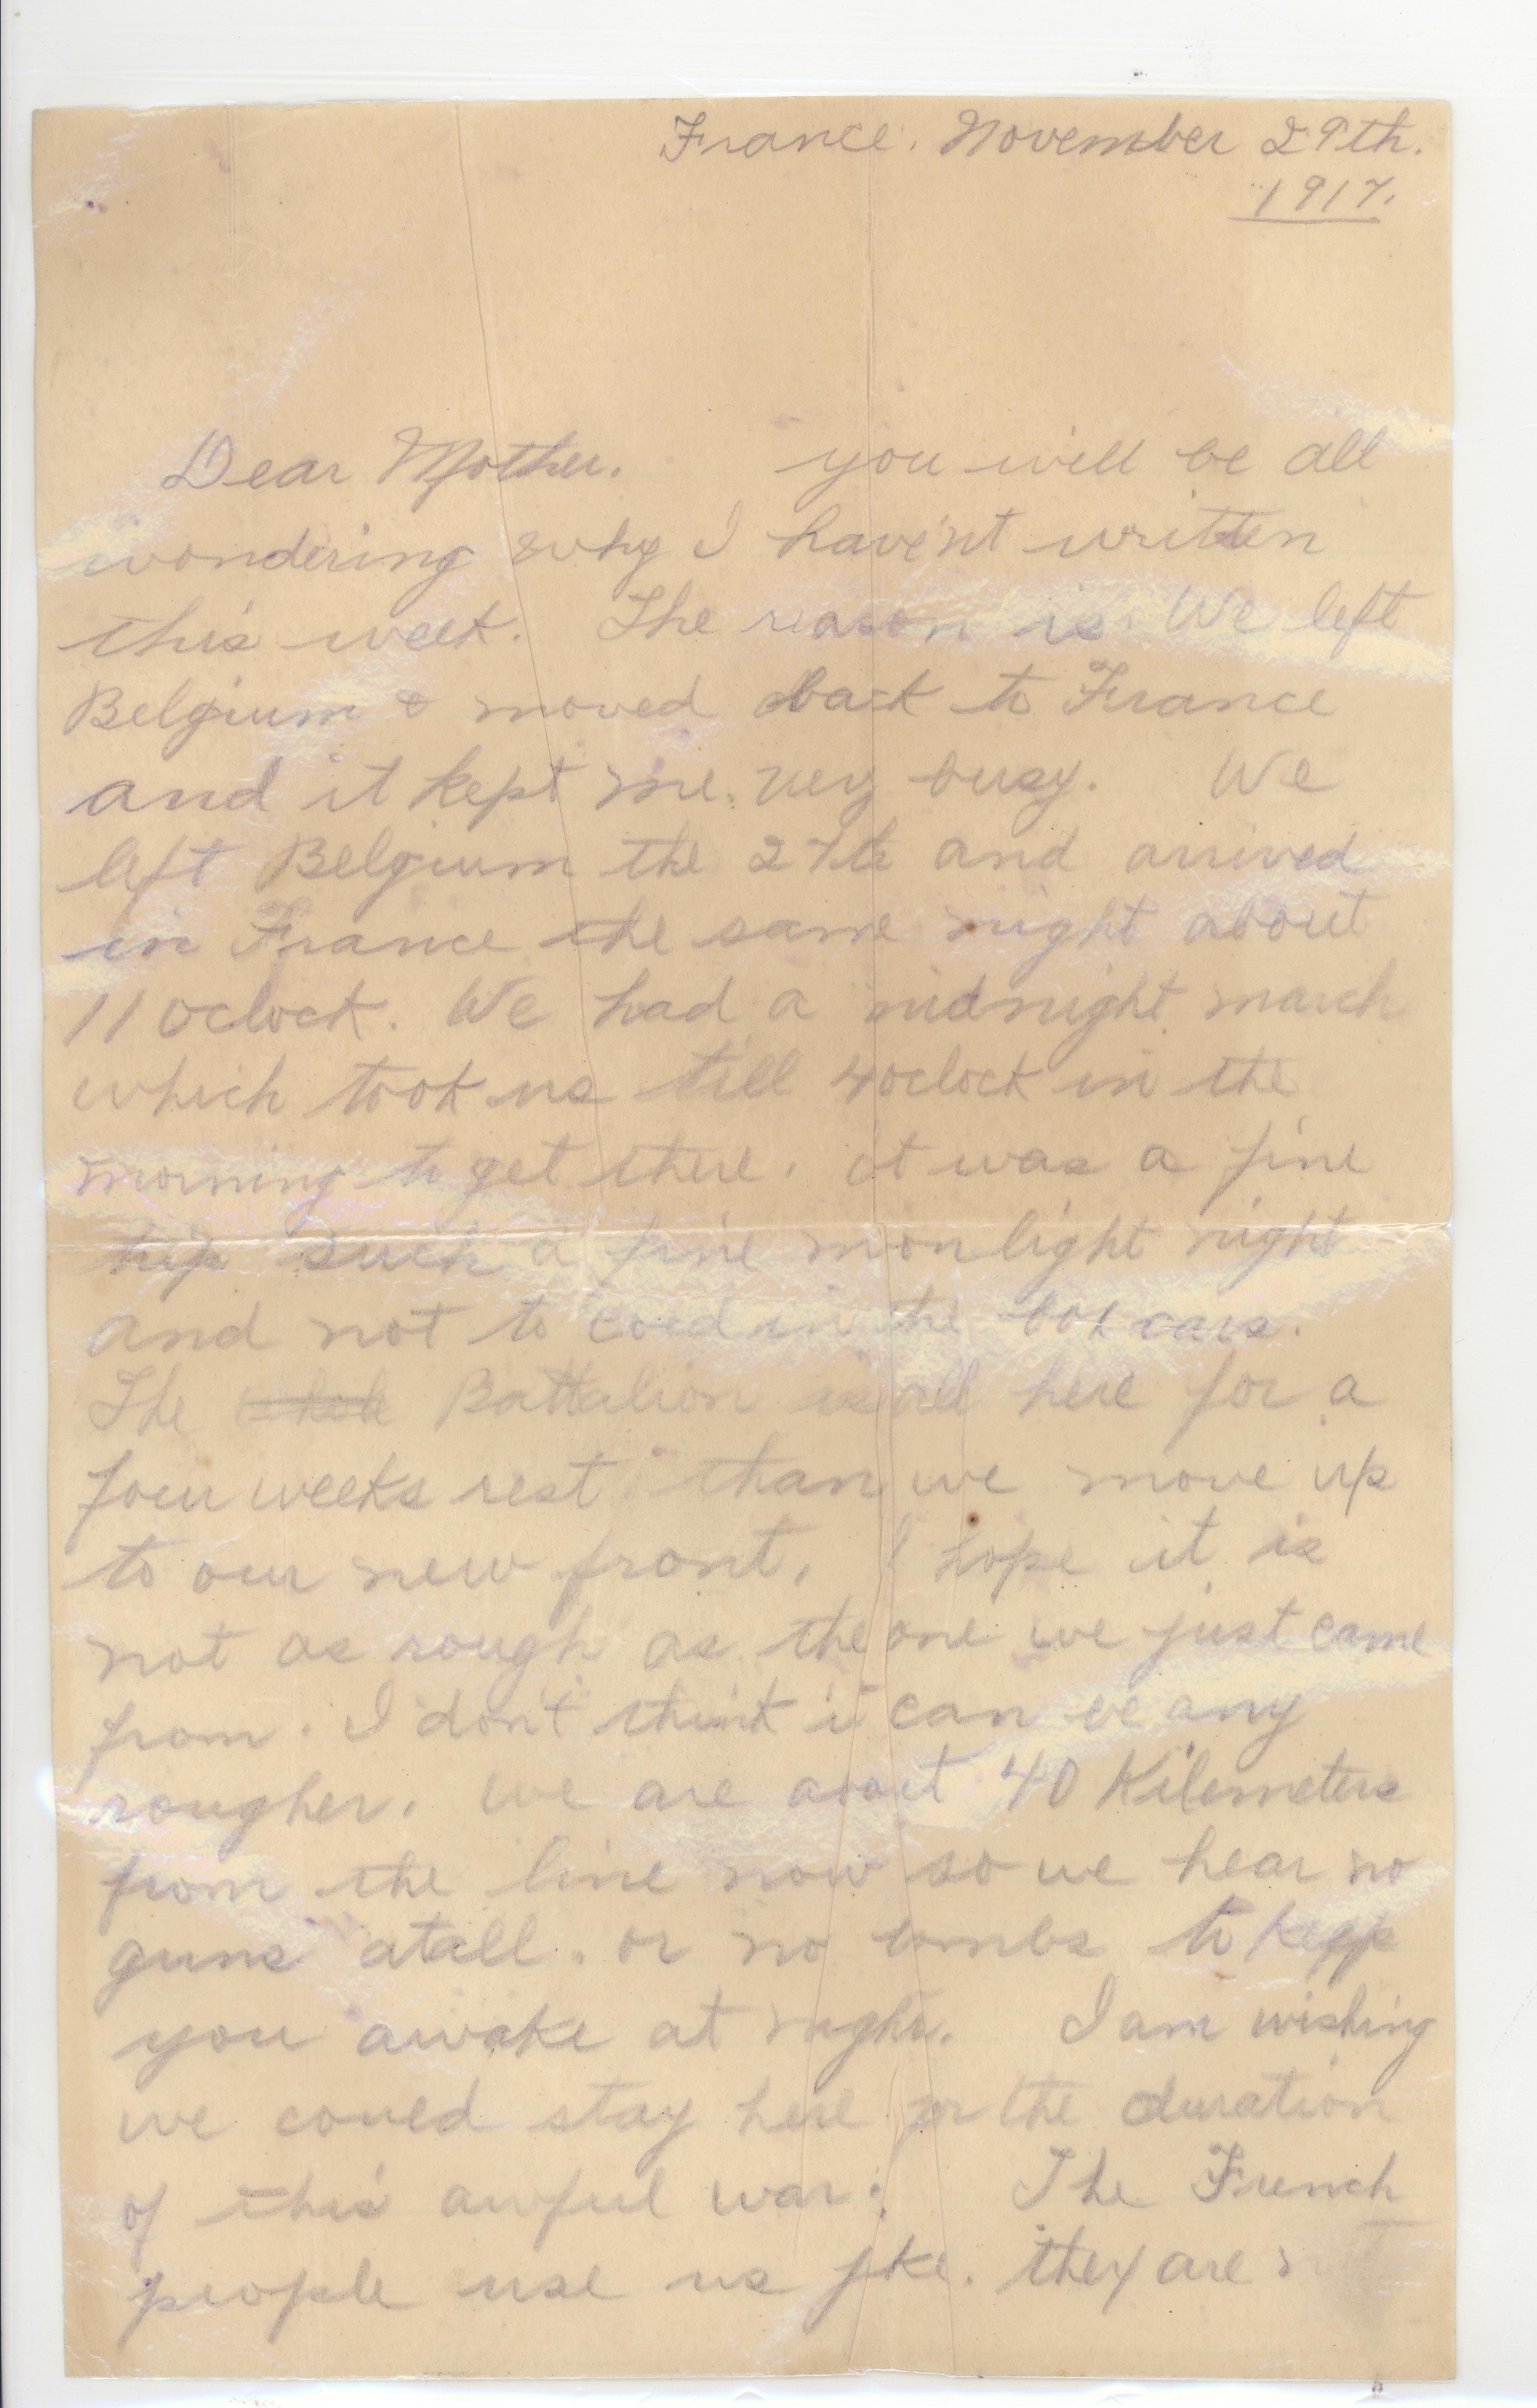 France. November 29th.
1917.
Dear Mother. you will be all
wondering why I haven't written
this week. The reason is. We left
Belgium & moved back to France
and it kept me. very busy. We
left Belgium the 27th and arrived
in France the same night about
11 oclock. We had a midnight march
which took us till 4 oclock in the
morning to get there. it was a fine
trip such a fine moonlight night
and not to cold in the box cars.
The Battalion is all here for a
four weeks rest than we move up
to our new front. I hope it is
not as rough as the one we just came
from. I don't think it can be any
rougher. we are about 40 Kilemeters
from the line now so we hear no
guns atall. or no bombs to keep
you awake at night. I am wishing
we could stay here for the duration
of this awful war. The French
people use us they are